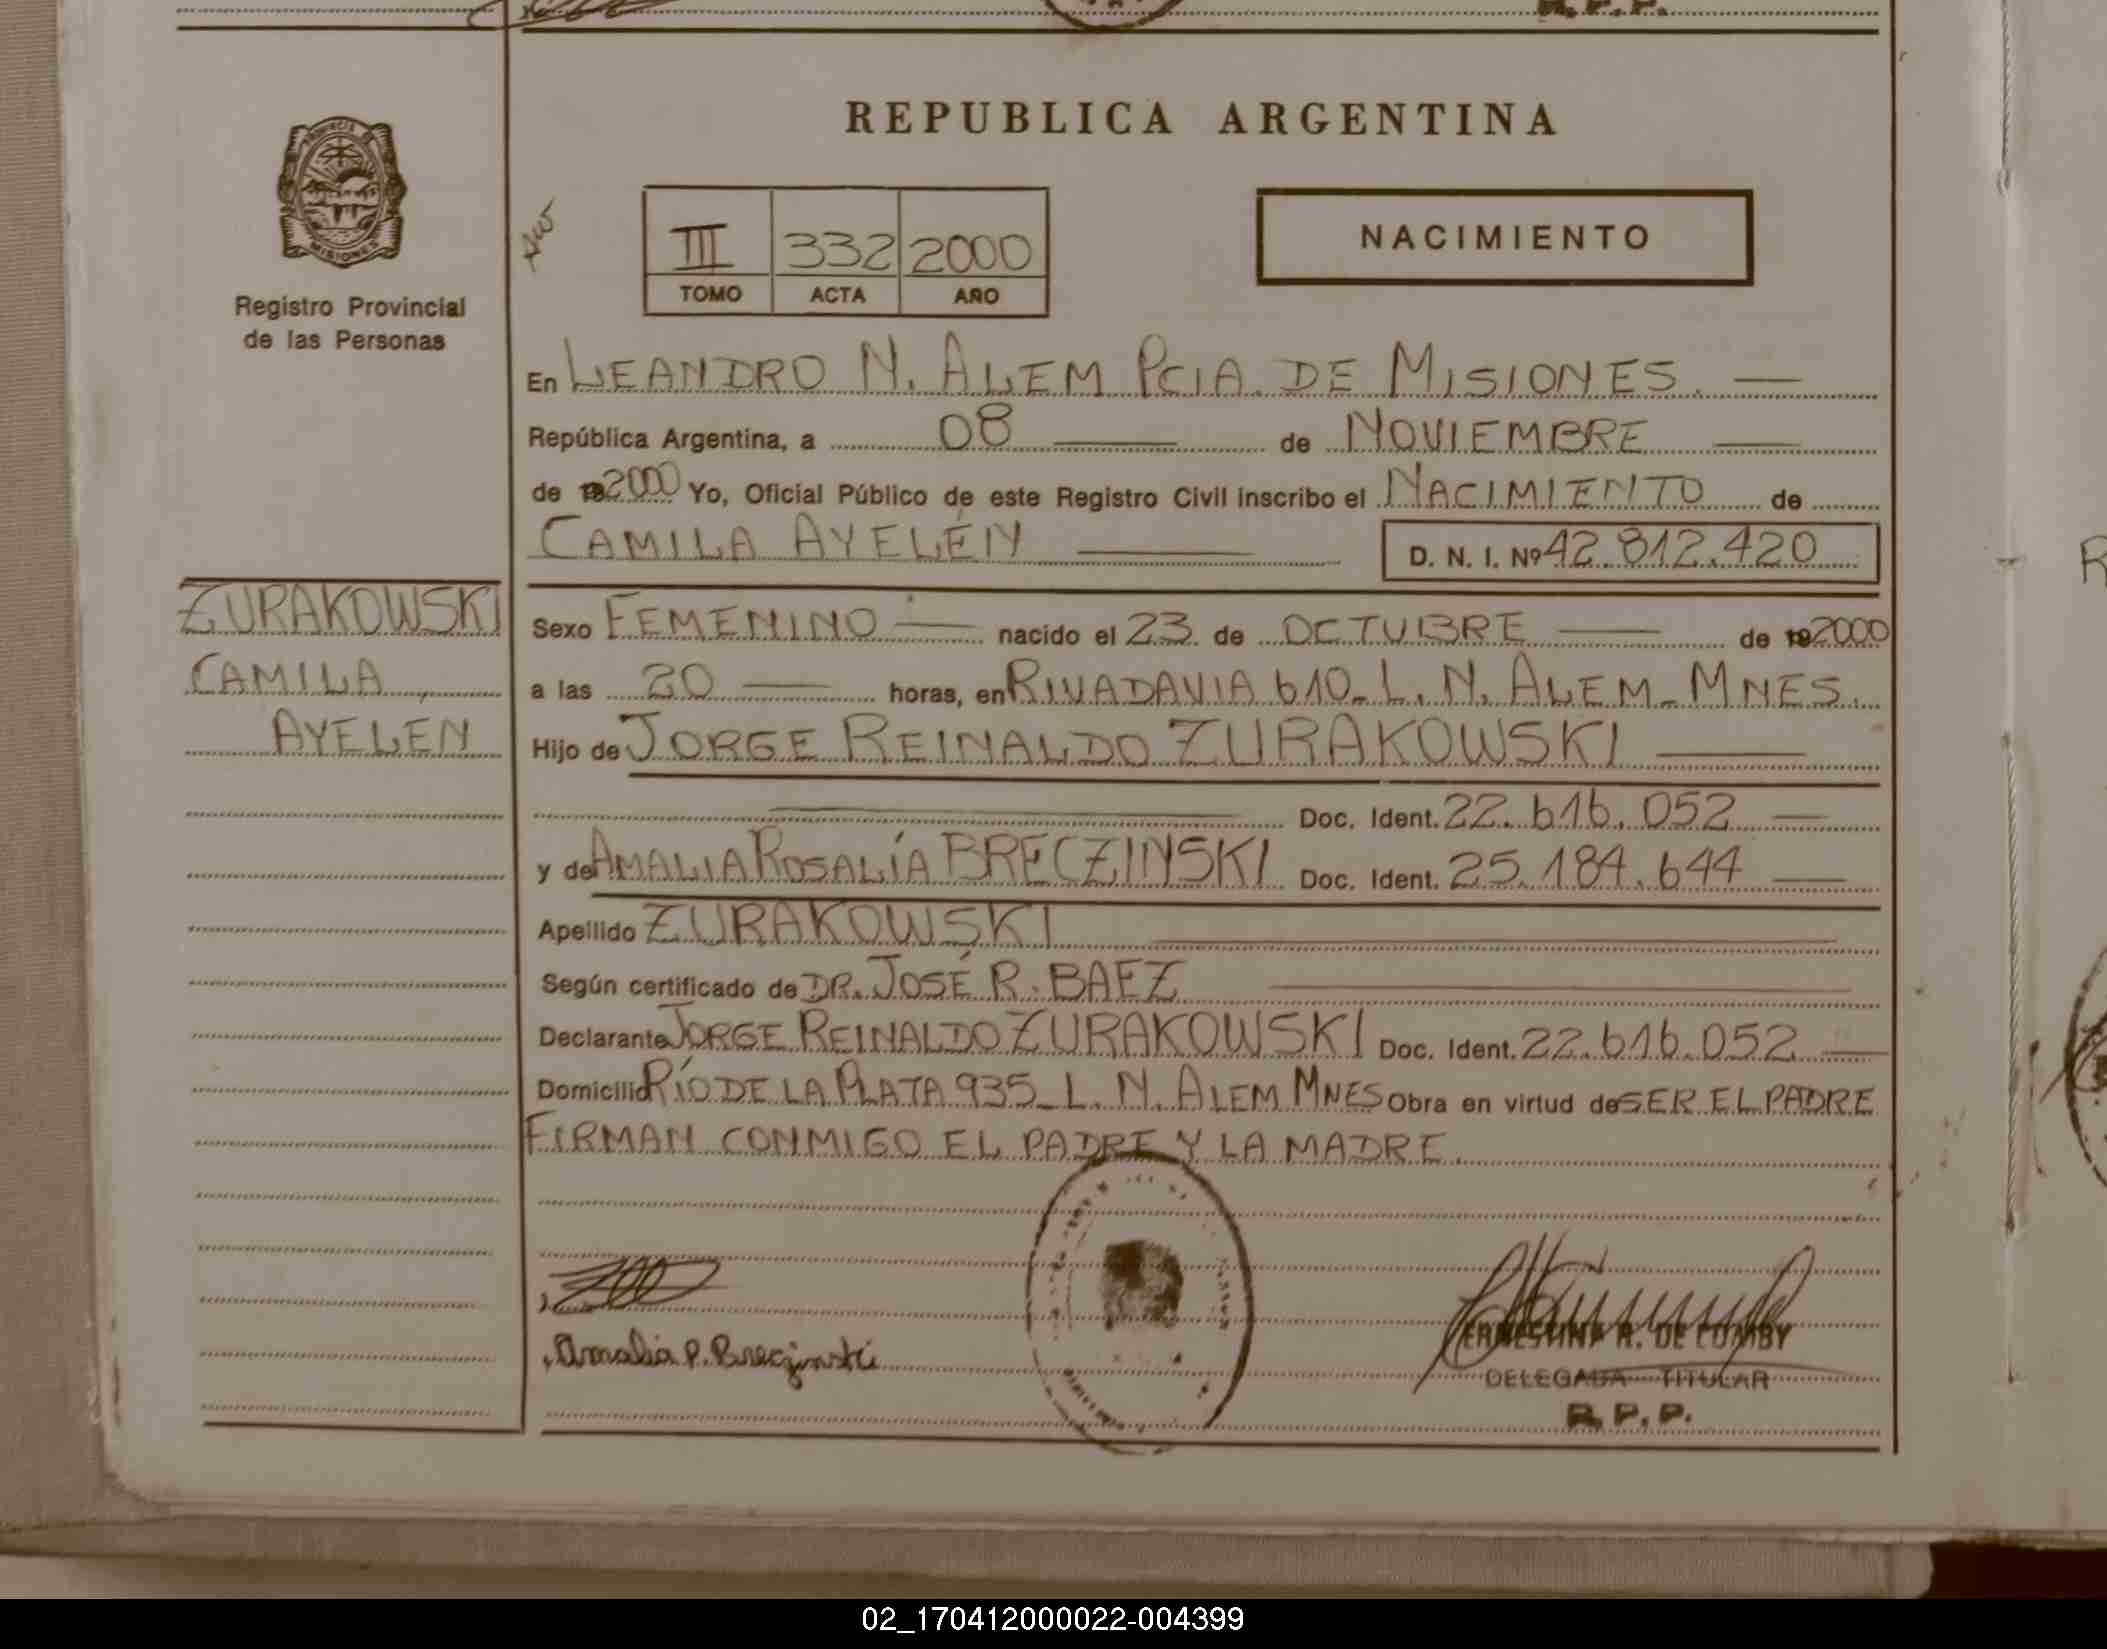 R. P. P.
REPUBLICA ARGENTINA
PROVINCIA DE
MISIONES
Registro Provincial
de las Personas
III 332 2000
TOMO ACTA AÑO
NACIMIENTO
En LEANDRO N. ALEM PCIA. DE MISIONES.
República Argentina, a 08 de NOVIEMBRE
de 2000 Yo, Oficial Público de este Registro Civil inscribo el NACIMIENTO de
CAMILA AYELÉN
D. N. I. Nº 42.812.420
ZURAKOWSKI
CAMILA
AYELEN
Sexo FEMENINO nacido el 23 de OCTUBRE de 2000
a las 20 horas, en RIVADAVIA 610_L. N. ALEM_MNES.
Hijo de JORGE REINALDO ZURAKOWSKI
Doc. Ident. 22.616.052
y de AMALIA ROSALÍA BRECZINSKI Doc. Ident. 25.184.644
Apellido ZURAKOWSKI
Según certificado de DR. JOSÉ R. BAEZ
Declarante JORGE REINALDO ZURAKOWSKI Doc. Ident. 22.616.052
Domicilio RÍO DE LA PLATA 935_L. N. ALEM MNES Obra en virtud de SER EL PADRE
FIRMAN CONMIGO EL PADRE Y LA MADRE.
Amalia R. Breczinski
DE
DELEGADA TITULAR
R. P. P.
02_170412000022-004399